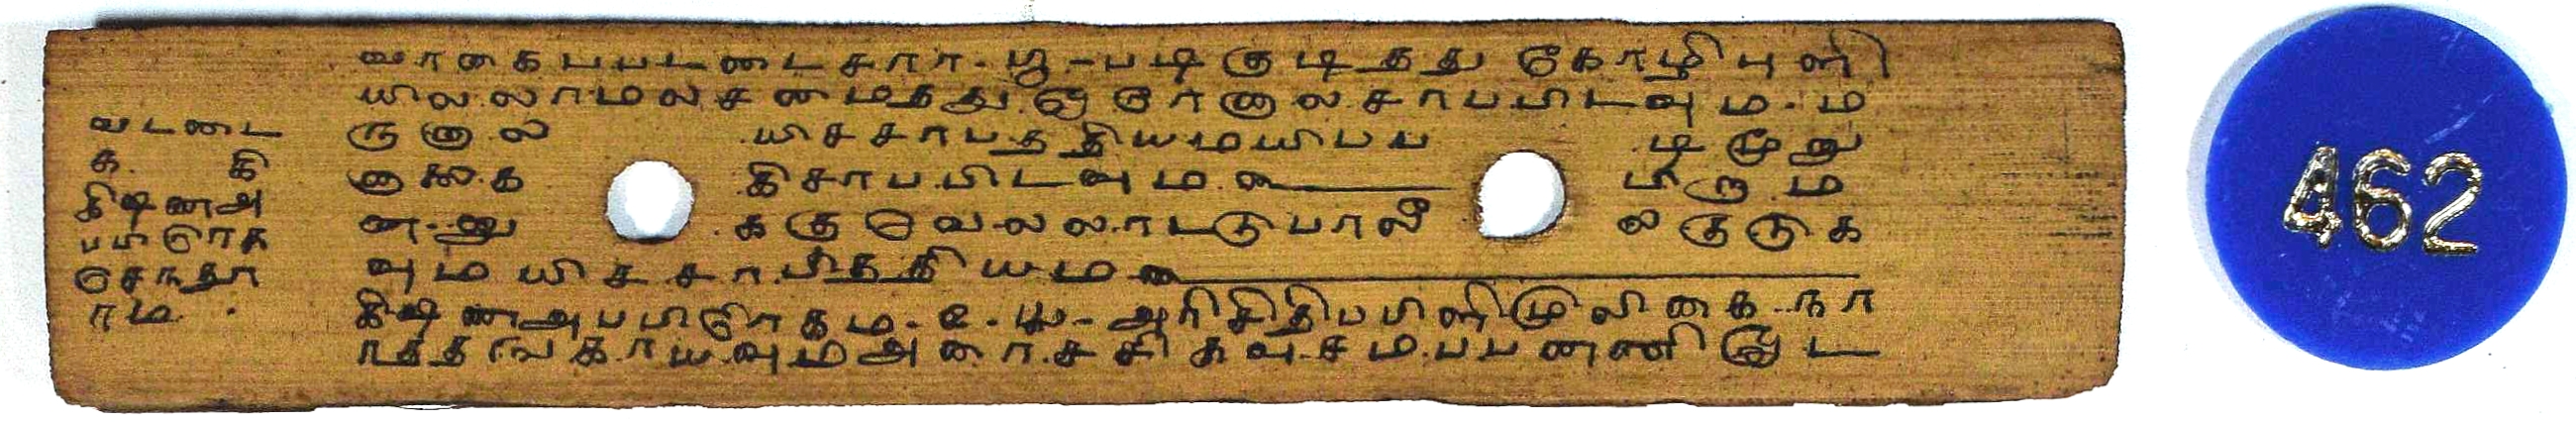 வாகைபபடடைசாா-ஐ-படிகுடிதது கோழிபுளி
யிலலாமலசமைதது ஒரோனாலசாபபிடவும-ம
ருனால யிசசாபததியமயிபப டிமூனு
னாலைக கிசாபபிடவும பிரும
ன-னு ககுவெலலாடடுபாலீ லகுடுக
வும யிசசாபிததியம
கிஷணஅபபிரோகம-உ-அரிசிதிபபிளிமூலிகை-நா
ரததஙகாயவும அரைசசிகவுசமபபணணிஇட
வடடை
க. கி
கிஷணஅ
பபிரோக
செநதூ
ரம
462